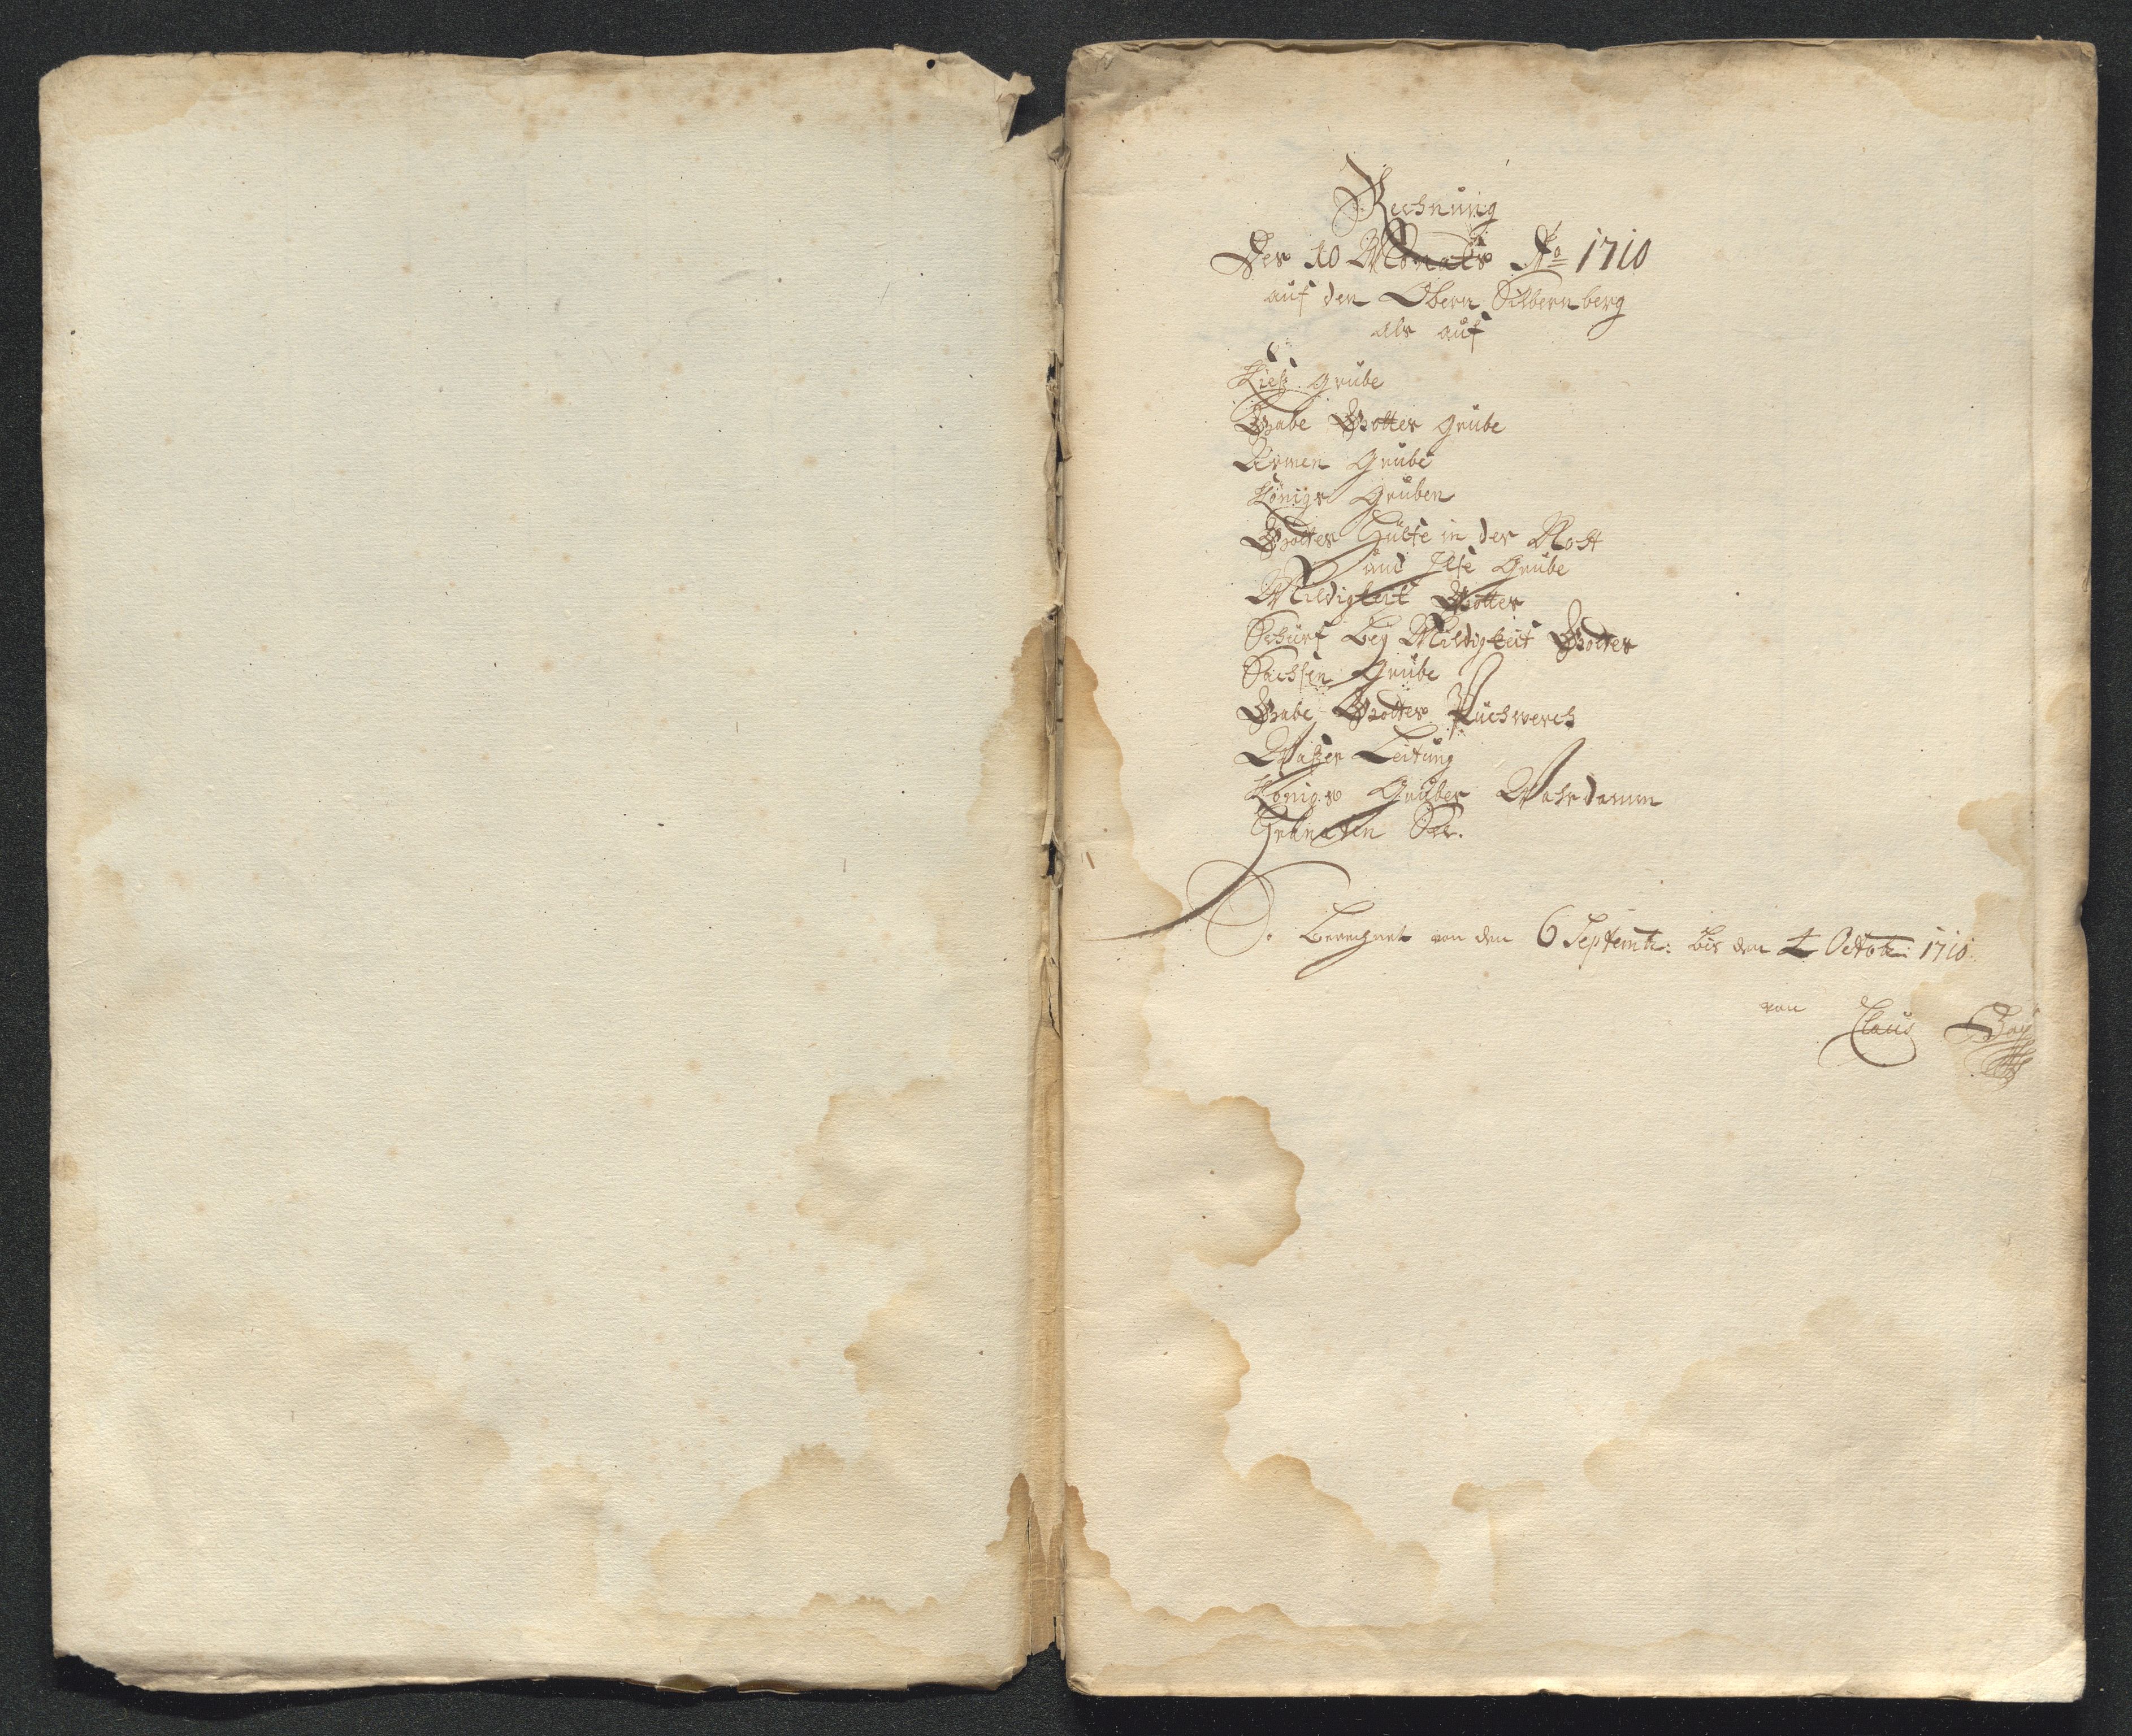 Rechnung
Des 10 Monats Ao 1710
auf den Obern Silbernberg
als auf
Kieß grube
Gabe Gottes grube
Armen Grube
Königs Gruben
Gottes Hülfe in der Noht
und Ilse Grube
Mildigkeit Gottes
Schürf bey Mildigkeit Gottes
Sachsen Grube
Gabe Gottes Puchwerch
Waßer Leitung
Königs Gruber
Berechnet von den 6 Septemb: bis den 4 Octob: 1710
von Claus